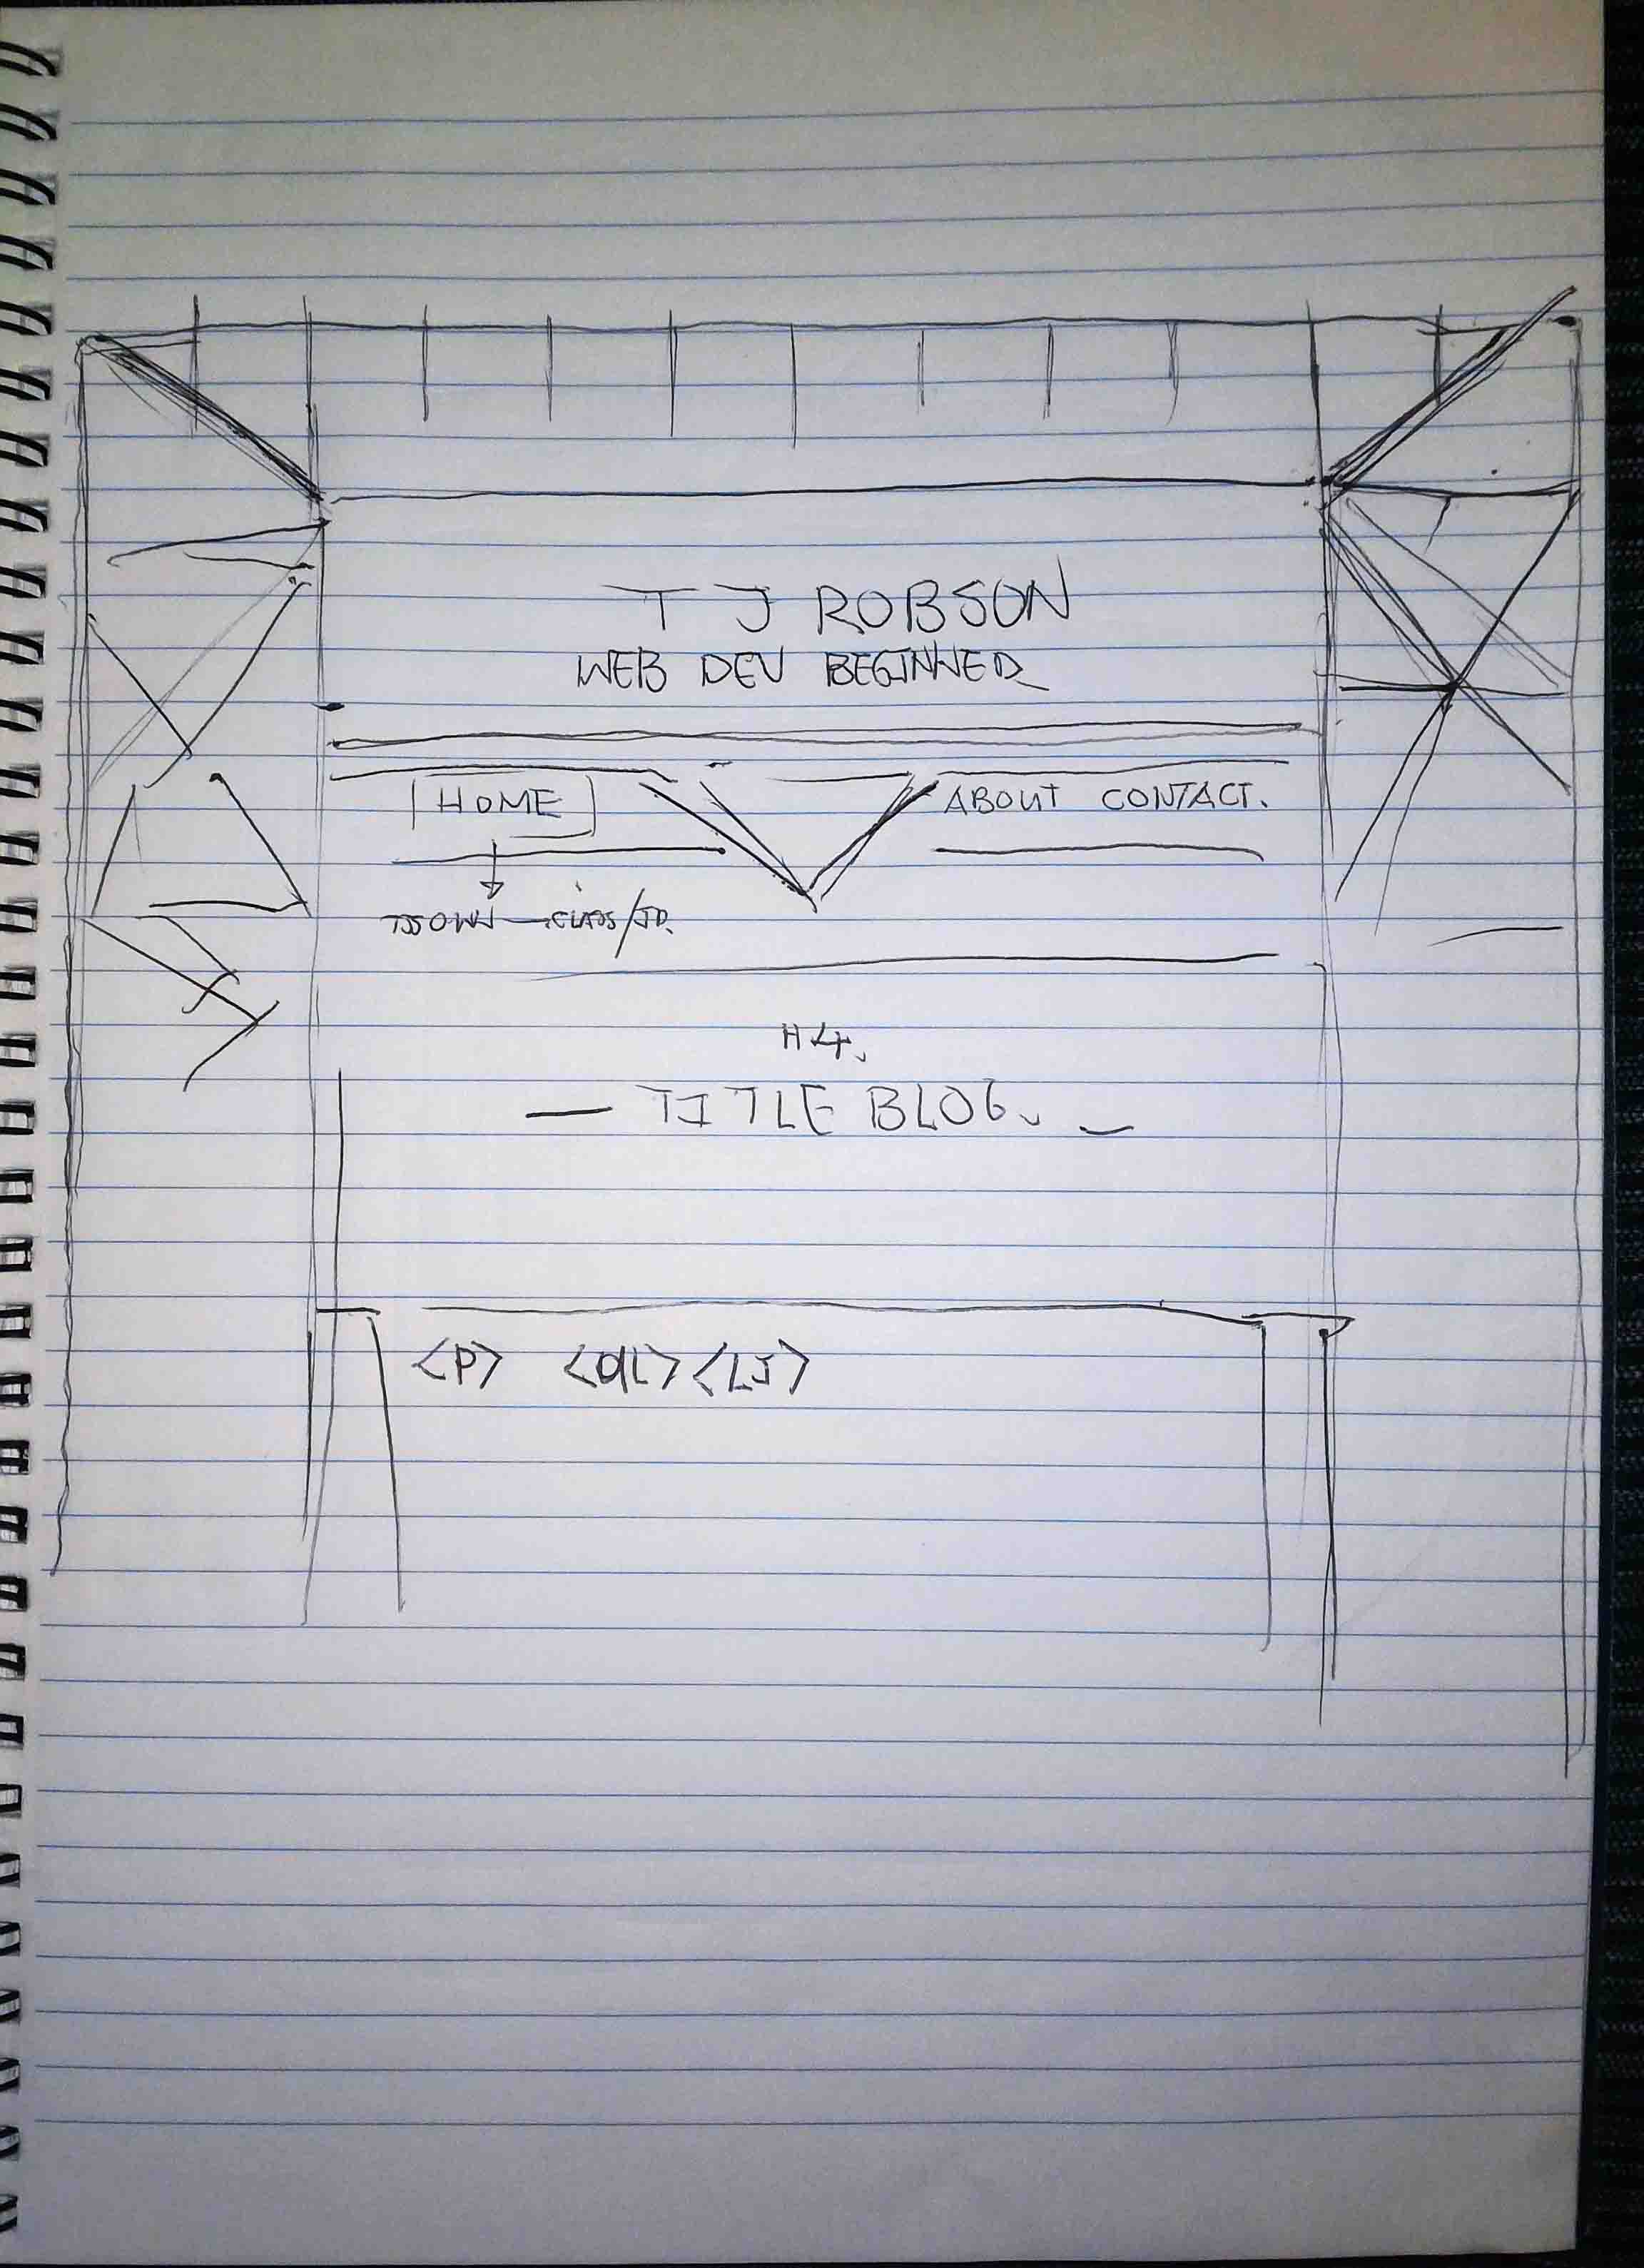 T J ROBSON
WEB DEV BEGINNER
HOME ABOUT CONTACT.
CLASS/ID.
H4.
— TITLE BLOG. —
<P> <OL> <LI>